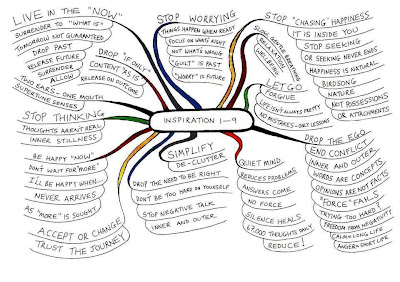 LIVE IN THE "NOW"
SURRENDER TO "WHAT IS"
TOMORROW NOT GUARANTEED
DROP PAST
RELEASE FUTURE
SURRENDER
ALLOW
TWO EARS - ONE MOUTH
SUPERFINE SENSES
DROP "IF ONLY"
CONTENT "AS IS"
RELEASE ON OUTCOME
STOP WORRYING
THINGS HAPPEN WHEN READY
FOCUS ON WHAT'S RIGHT
NOT WHAT'S WRONG
"GUILT" IS PAST
"WORRY" IS FUTURE
SLOW GENTLE BREATHING
STOP "CHASING" HAPPINESS
IT IS INSIDE YOU
STOP SEEKING
OR SEEKING NEVER ENDS
HAPPINESS IS NATURAL
BIRDSONG
NATURE
NOT POSSESSIONS
OR ATTACHMENTS
LET GO
FORGIVE
LIFE ISN'T ALWAYS PRETTY
NO MISTAKES - ONLY LESSONS
INSPIRATION 1-9
STOP THINKING
THOUGHTS AREN'T REAL
INNER STILLNESS
BE HAPPY "NOW"
DON'T WAIT FOR "MORE"
I'LL BE HAPPY WHEN..
NEVER ARRIVES
AS "MORE" IS SOUGHT
ACCEPT OR CHANGE
TRUST THE JOURNEY
SIMPLIFY
DE-CLUTTER
DROP THE NEED TO BE RIGHT
DON'T BE TOO HARD ON YOURSELF
STOP NEGATIVE TALK
INNER AND OUTER
QUIET MIND
REDUCES PROBLEMS
ANSWERS COME
NO FORCE
SILENCE HEALS
67,000 THOUGHTS DAILY
REDUCE!
DROP THE EGO
END CONFLICT
INNER AND OUTER
WORDS ARE CONCEPTS
OPINIONS ARE NOT FACTS
"FORCE" FAILS
TRYING TOO HARD?
FREEDOM FROM NEGATIVITY
CALM = LONG LIFE
ANGER = SHORT LIFE